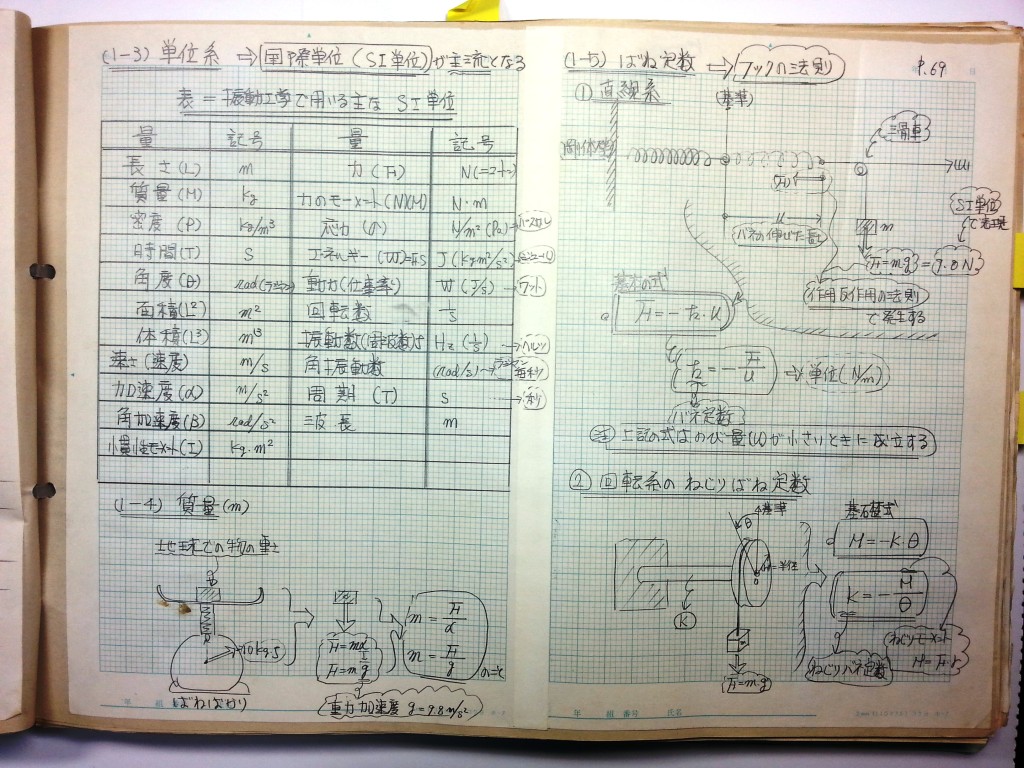 (1-3) 単位系 ⇒ 国際単位(SI単位)が主流となる
表=振動工学で用いる主な SI単位
量 記号 量 記号
長さ(L) m 力(F) N(ニュートン)
質量(M) kg 力のモーメント(N)(M) N·m
密度(P) kg/m³ 応力(σ) N/m²(Pa) →パースカル
時間(T) S エネルギー(W)=FS J(kg·m²/s²)
角度(θ) rad(ラジアン) 動力(仕事率) W(J/s) →ワット
面積(L²) m² 回転数 1/s
体積(L³) m³ 振動数(周波数)f Hz(1/s) →ヘルツ
速さ(速度) m/s 角振動数 (rad/s) →ラジアン毎秒
加速度(α) m/s² 周期(T) s →秒
角加速度(β) rad/s² 波長 m
慣性モーメント(I) kg·m²
(1-4) 質量(m)
地球での物の重さ
10kgf
ばねばかり
F=mα
F=mg
重力加速度 g=9.8m/s²
m = F/α
m = F/g
(1-5) ばね定数 → フックの法則
P.69
① 直線系
(基準)
剛体壁
滑車
(F)
バネの伸びた量
m
SI単位で表現
F=mg = 9.8N
作用反作用の法則で発生する
基本の式
F=-k·U
k = -F/U ⇒ 単位(N/m)
バネ定数
注 上記の式はのび量(U)が小さいときに成立する
② 回転系の ねじりばね定数
基準
θ
r=半径
K
F=m·g
基礎式
M=-K·θ
K = -M/θ
ねじりバネ定数
ねじりモーメント
M=F·r
年 組 番号 氏名